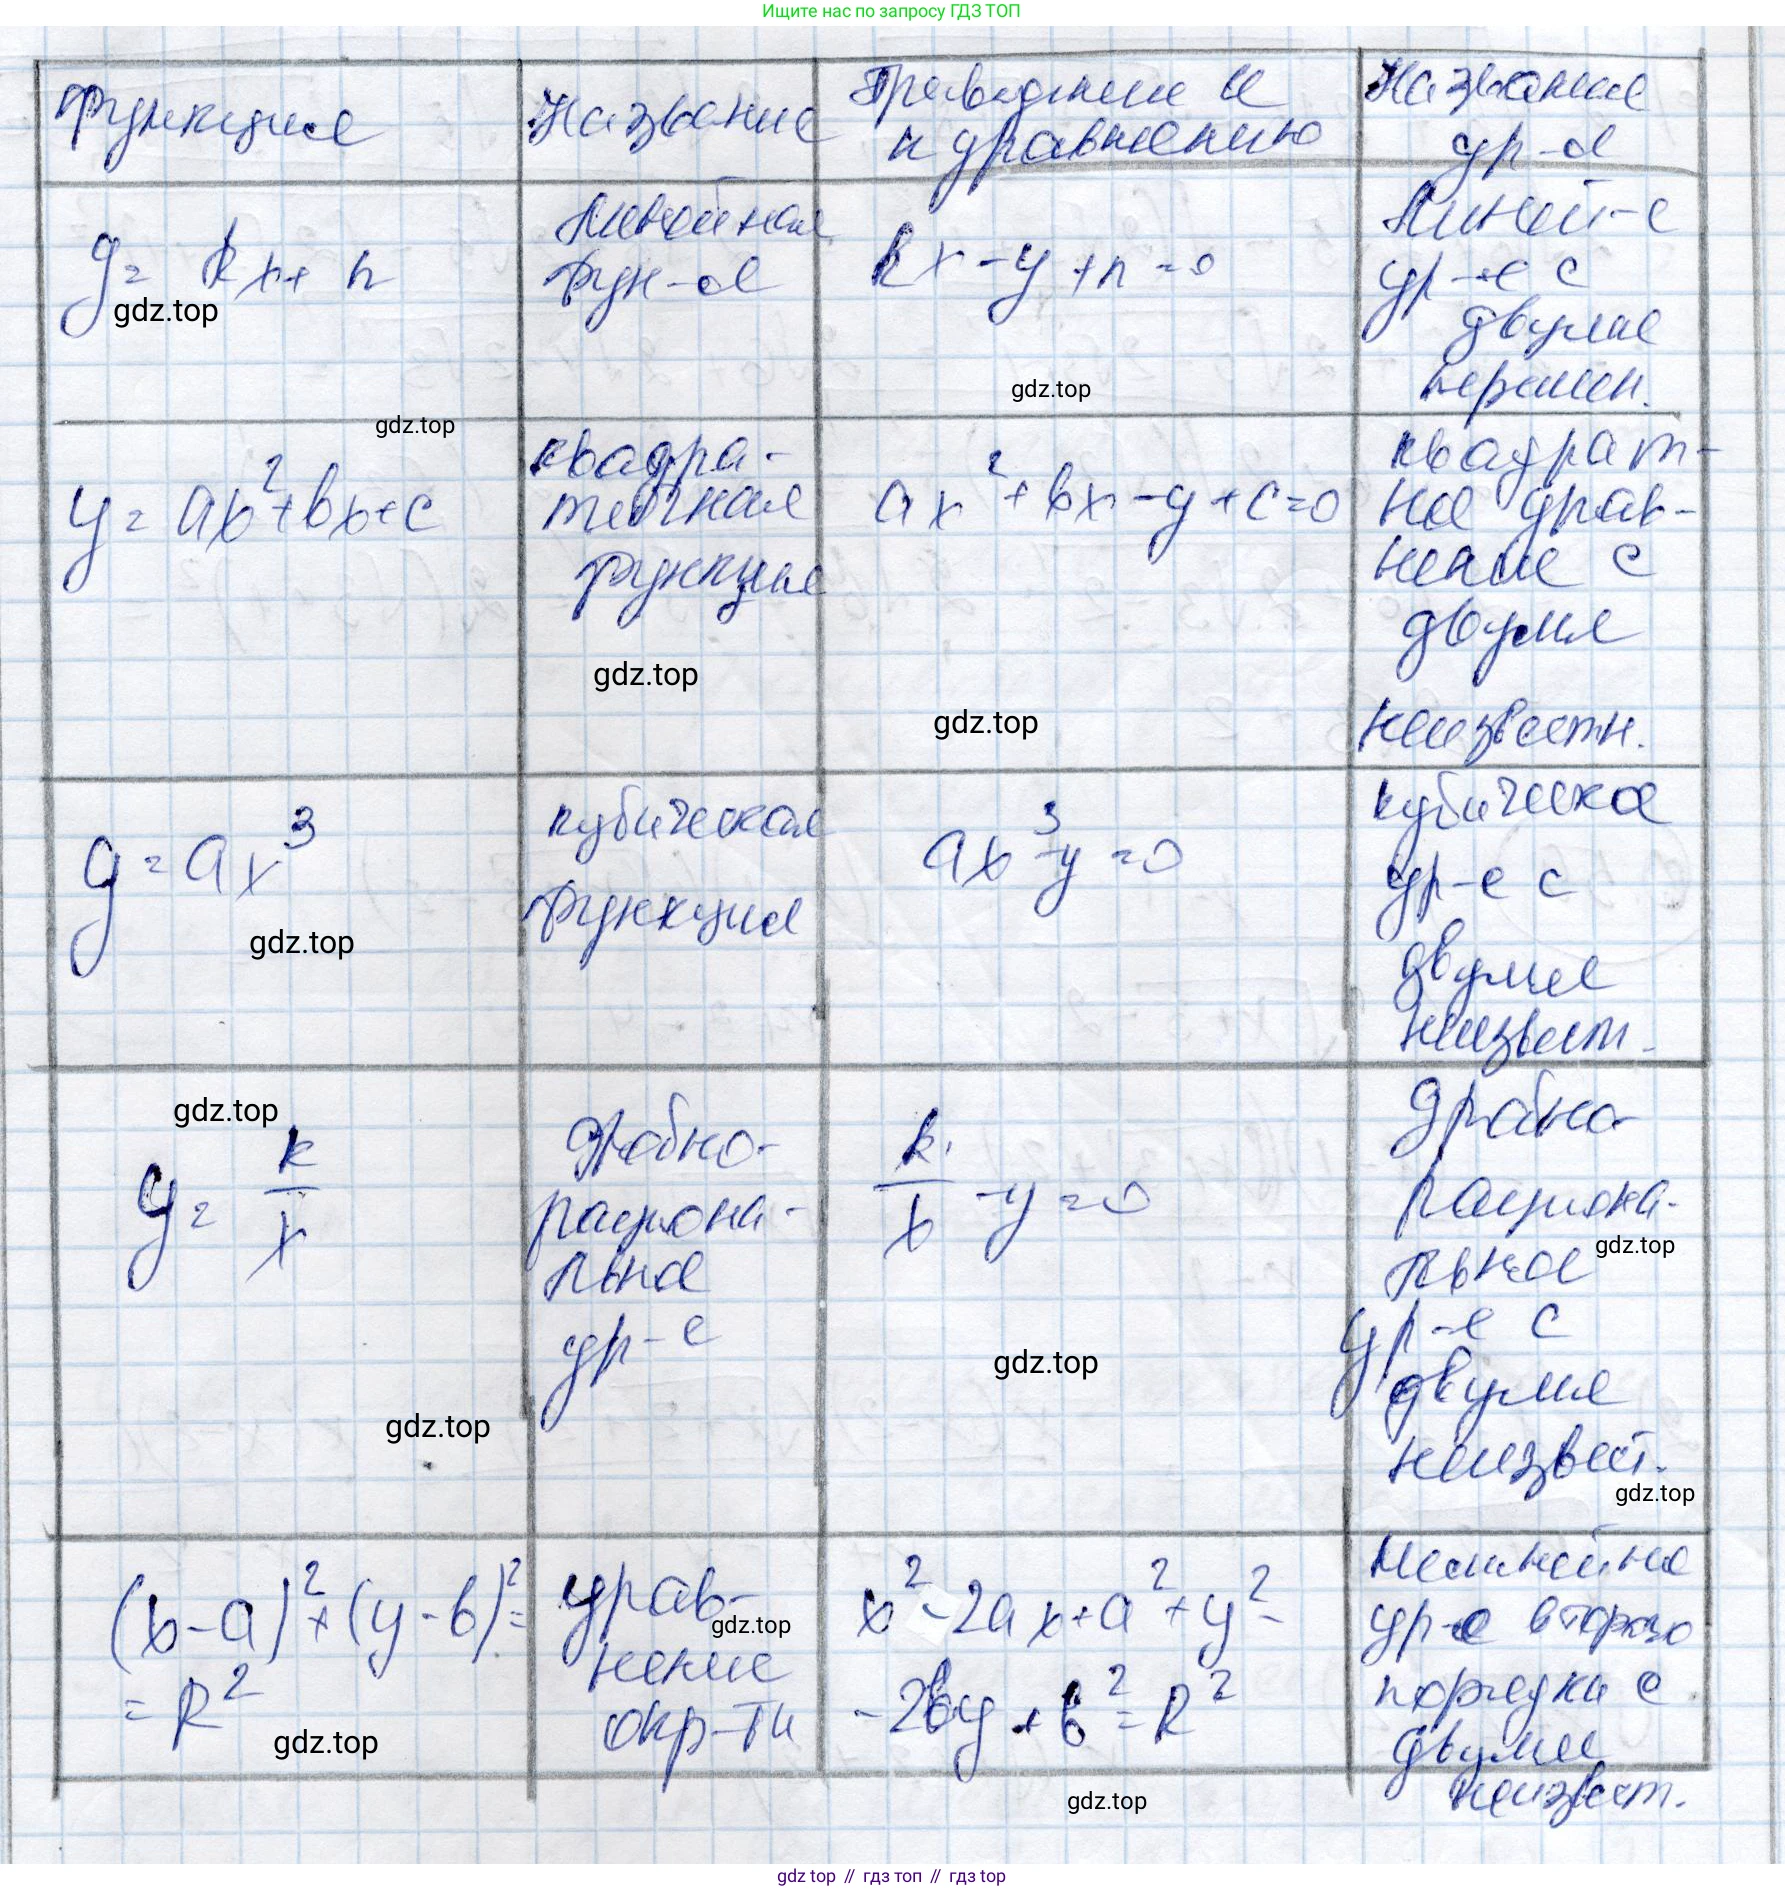 Ищите нас по запросу ГДЗ ТОП
Функция
Название
Приведение
к уравнению
Название
ур-я
y = kx + n
Линейная
фун-я
kx - y + n = 0
Линей-е
ур-е с
двумя
перемен.
gdz.top
gdz.top
gdz.top
y = ax² + bx + c
квадра-
тичная
функция
ax² + bx - y + c = 0
квадрат-
ное урав-
нение с
двумя
неизвестн.
gdz.top
gdz.top
y = ax³
кубическая
функция
ax³ - y = 0
кубическое
ур-е с
двумя
неизвест.
gdz.top
gdz.top
y = k/x
дробно-
рациона-
льное
ур-е
k/x - y = 0
дробно
рациона-
льное
ур-е с
двумя
неизвест.
gdz.top
gdz.top
gdz.top
gdz.top
(x - a)² + (y - b)² =
= R²
урав-
нение
окр-ти
x² - 2ax + a² + y² -
- 2by + b² = R²
Нелинейное
ур-е второго
порядка с
двумя
неизвест.
gdz.top
gdz.top
gdz.top
gdz top // гдз топ // гдз top